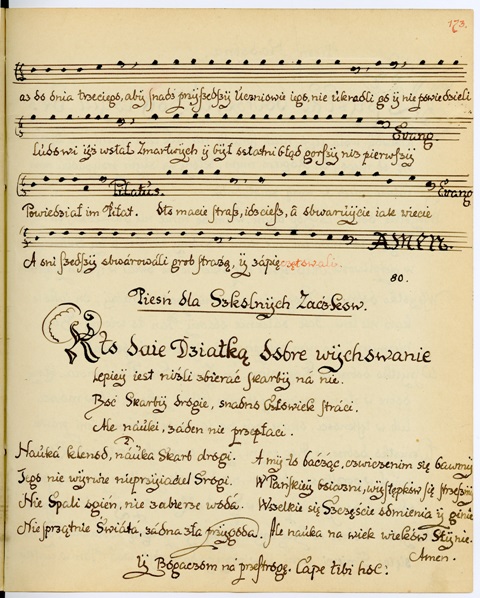 173.
aż do dnia trzeciego, abÿ snadź przÿszedszÿ Uczniowie iego, nie ukradli go ÿ nie powiedzieli
Evang.
Ludowi iż wstał Zmartwÿch ÿ bÿł ostatni błąd gorszÿ niż pierwszÿ
Pilatus. Evang
Powiedział im Piłat. Oto macie straż, idźcież, a obwaruÿcie iako wiecie
AMEN.
A oni szedszÿ obwárowáli grob strażą, ÿ zápieczętowali.
80.
Pieśń dla Szkolnÿch Zaczkow.
Kto daie Dziatką dobre wÿchowanie
Lepieÿ iest niźli zbieráć skarbÿ ná nie.
Boć Skarbÿ drogie, snadno człowiek stráci.
Ale náuki, żáden nie przepłaci.
Náuká klenod, náuka skarb drogi.
Iego nie wÿrwie nieprzÿiaciel Srogi.
Nie Spali ogień, nie zabierze wodá.
Nie sprzątnie Świátá, żádna zła przÿgoda.
A mÿ to báčząc, cźwiczenim się bawmÿ
W Páńskieÿ boiaźni, wÿstępków się strzeżmÿ
Wszelkie się Szczęście odmienia ÿ ginie
Ale nauka na wiek wieków słÿnie.
Amen.
Ÿ Bogaczom ná przestrogę. Cape tibi hoc: